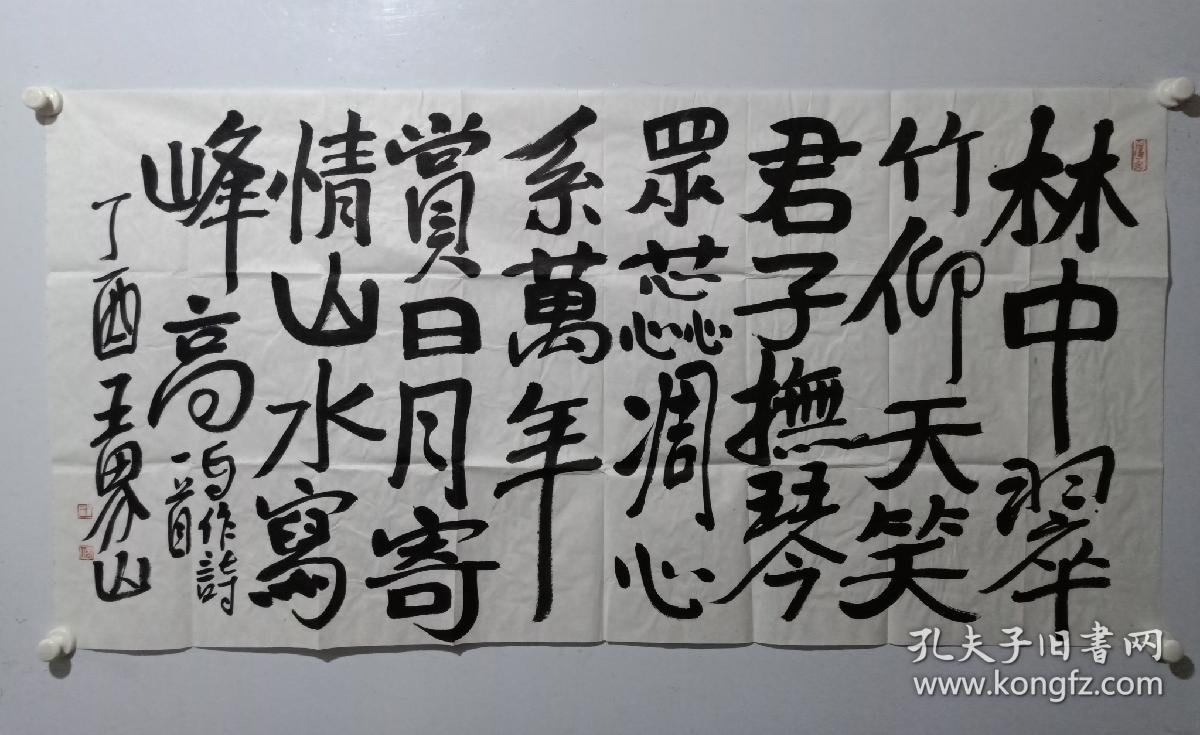 林中翠
竹仰天笑
君子撫琴
眾蕊凋心
系萬年
賞日月寄
情山水寫
峰高
自作詩
一首
丁酉王界山
孔夫子旧书网
www.kongfz.com